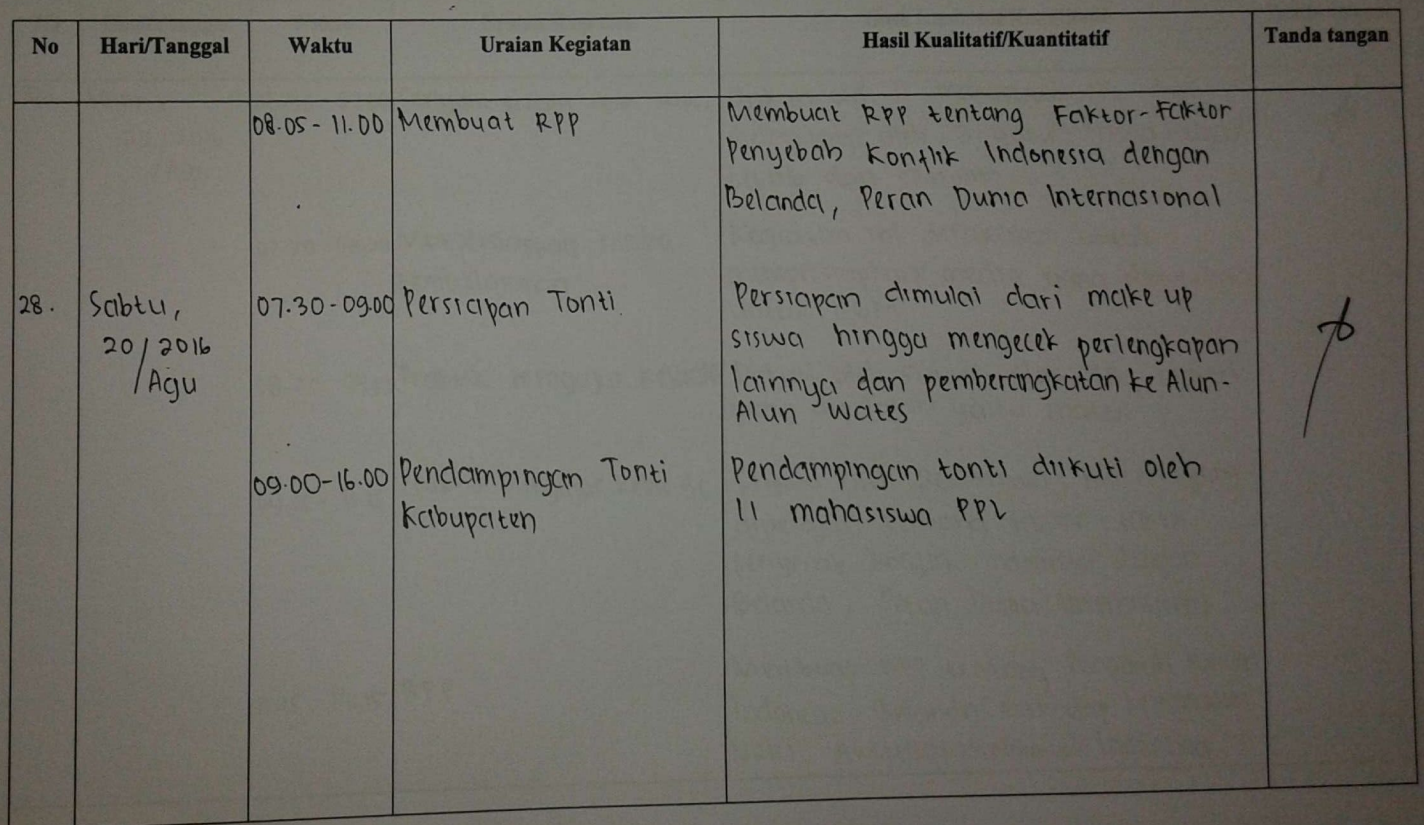 No Hari/Tanggal Waktu Uraian Kegiatan Hasil Kualitatif/Kuantitatif Tanda tangan
08.05 - 11.00 Membuat RPP Membuat RPP tentang Faktor-Faktor
Penyebab Konflik Indonesia dengan
Belanda, Peran Dunia Internasional
28. Sabtu, 07.30-09.00 Persiapan Tonti Persiapan dimulai dari make up
20/2016 siswa hingga mengecek perlengkapan
/Agu lainnya dan pemberangkatan ke Alun-
Alun Wates
09.00-16.00 Pendampingan Tonti Pendampingan tonti diikuti oleh
Kabupaten 11 mahasiswa PPL